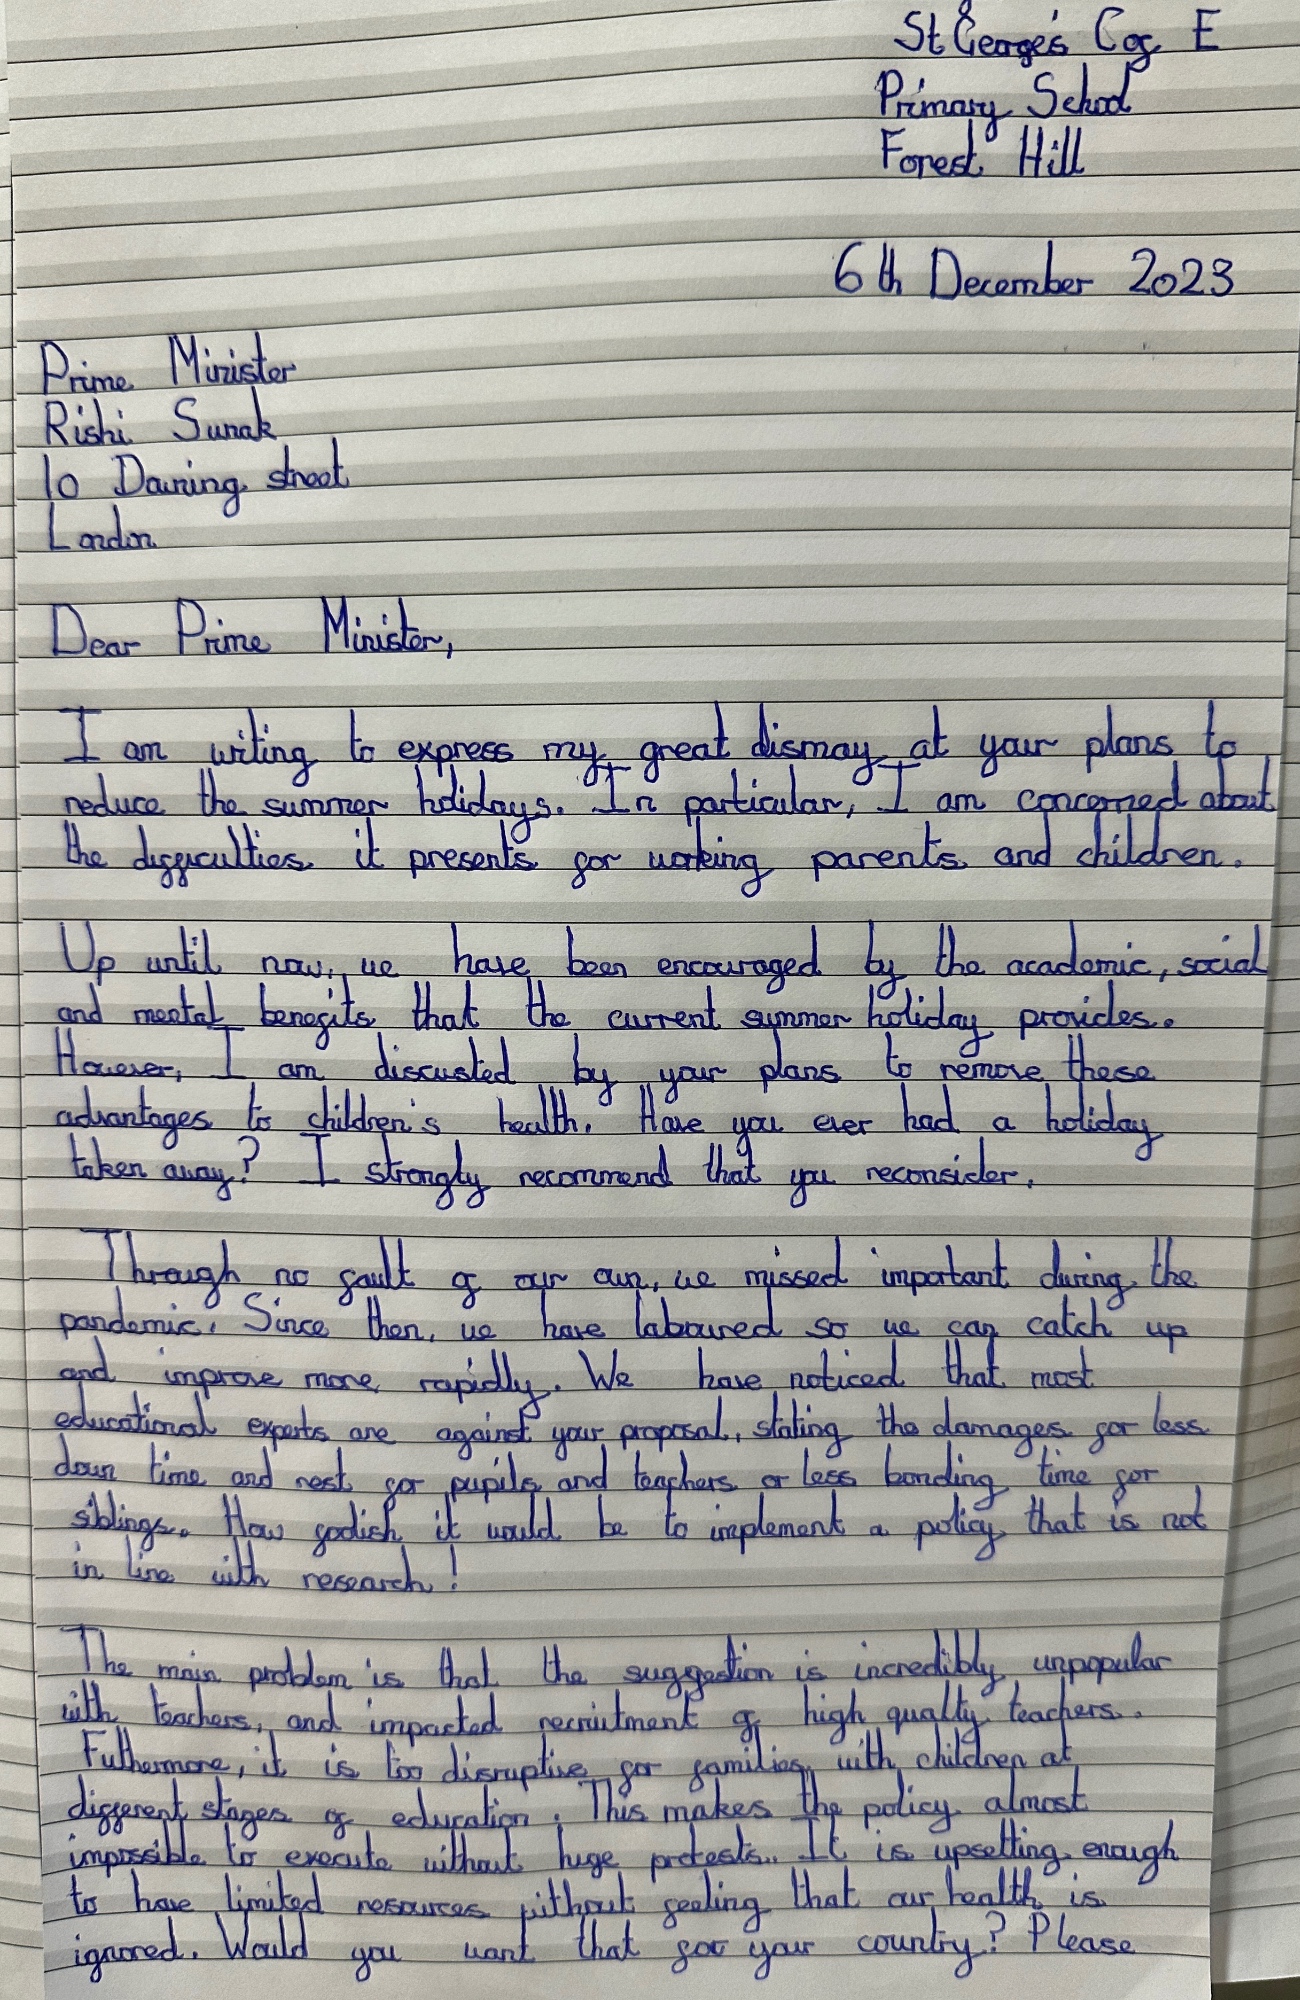 St George's C of E
Primary School
Forest Hill
6th December 2023
Prime Minister
Rishi Sunak
10 Downing street
London
Dear Prime Minister,
I am writing to express my great dismay at your plans to
reduce the summer holidays. In particular, I am concerned about
the difficulties it presents for working parents and children.
Up until now, we have been encouraged by the academic, social
and mental benefits that the current summer holiday provides.
However, I am discusted by your plans to remove these
advantages to children's health. Have you ever had a holiday
taken away? I strongly recommend that you reconsider.
Through no fault of our own, we missed important during the
pandemic. Since then, we have laboured so we can catch up
and improve more rapidly. We have noticed that most
educational experts are against your proposal, stating the damages for less
down time and rest for pupils and teachers or less bonding time for
siblings. How foolish it would be to implement a policy that is not
in line with research!
The main problem is that the suggestion is incredibly unpopular
with teachers, and impacted recruitment of high qualty teachers.
Futhermore, it is too disruptive for families with children at
different stages of education. This makes the policy almost
impossible to execute without huge protests. It is upsetting enough
to have limited resources without feeling that our health is
ignored. Would you want that for your country? Please